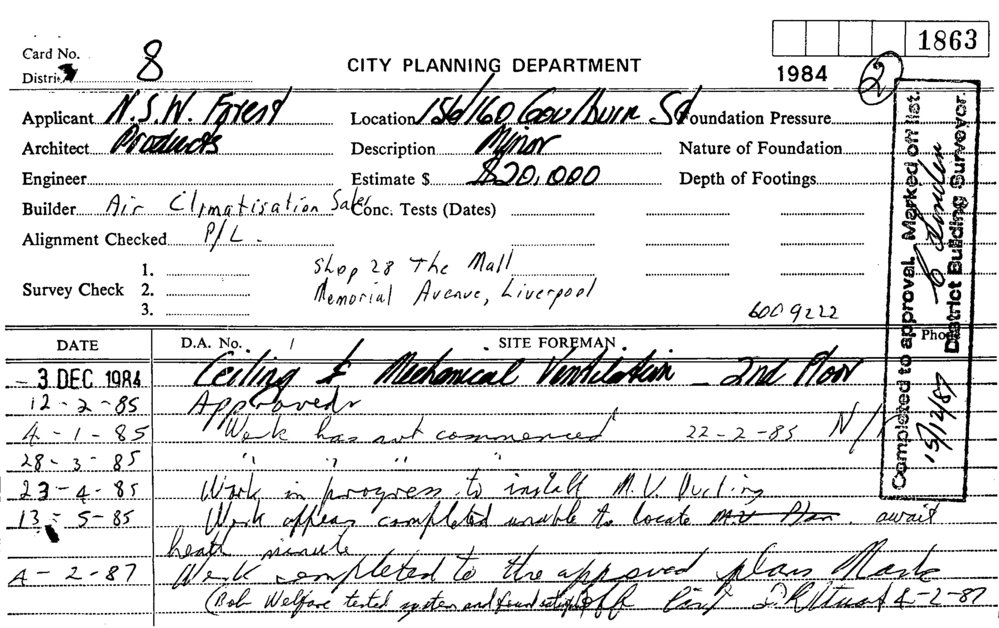 1863
Card No. 8
CITY PLANNING DEPARTMENT
1984
2
District
Applicant N.S.W. Forest
Location 156/160 Goulburn St
Foundation Pressure
Architect Products
Description Minor
Nature of Foundation
Engineer
Estimate $ $20,000
Depth of Footings
Builder Air Climatisation Sales
Conc. Tests (Dates)
Alignment Checked P/L.
Survey Check 1.
2.
3.
Shop 28 The Mall
Memorial Avenue, Liverpool
6009222
DATE
D.A. No. /
SITE FOREMAN
Pho
- 3 DEC 1984 Ceiling & Mechanical Ventilation - 2nd Floor
12-2-85 Approved
4-1-85 Work has not commenced 22-2-85 N/
28-3-85 " " " "
23-4-85 Work in progress to install M.V. Ducting
13-5-85 Work appears completed unable to locate Plan. await
heath minute
4-2-87 Work completed to the approved plans Mark
(Bob Welfare tested system and found off list 4-2-87
Completed to approval. Marked off list.
15/12/87
District Building Surveyor.